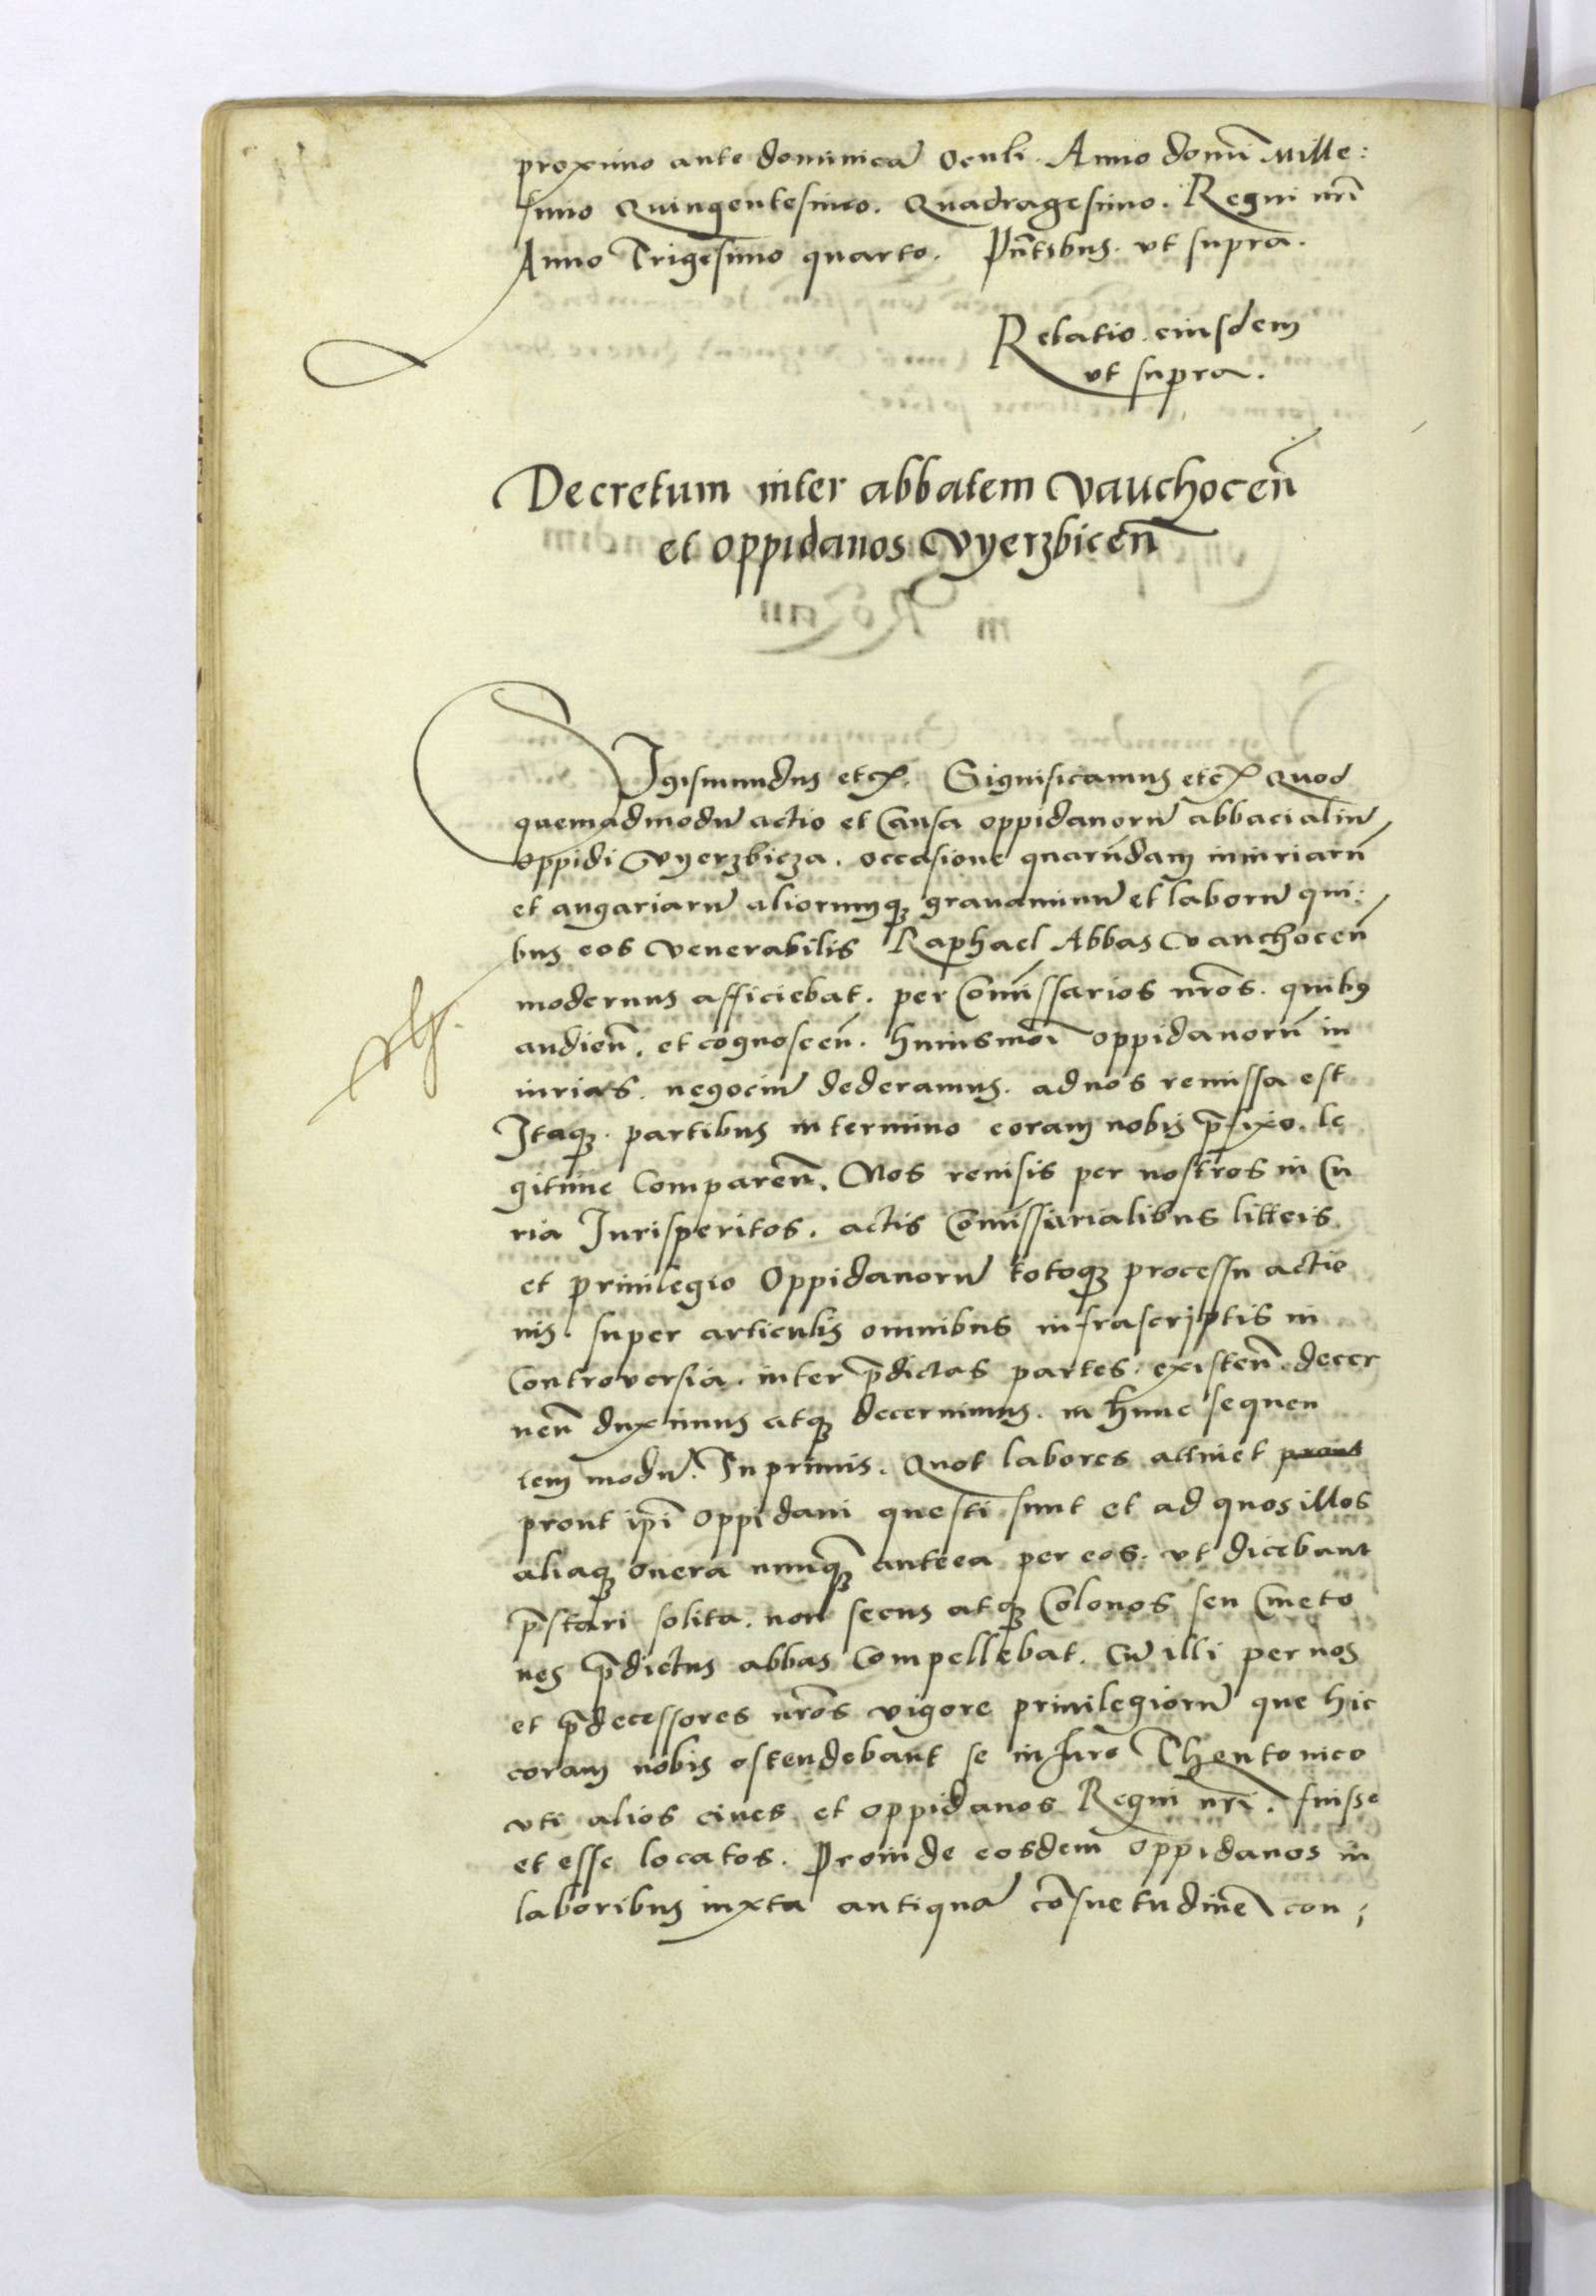 proximo ante dominicā Oculi. Anno domī Mille:
simo Quingentesimo. Quadragesimo. Regni nr̄i
Anno Trigesimo quarto. Pn̄tibus. vt supra.
Relatio eiusdem
vt supra.
Decretum inter abbatem Vauchocen̄
et oppidanos Vyerzbicen̄
Sigismundus etc̄. Significamus etc̄ Quod
quemadmodū actio et Causa oppidanorū abbacialiū
oppidi Vyerzbicza. occasione quarūdam iniuriarū
et angariarū aliorumq; grauaminū et laborū qui:
bus eos venerabilis Raphael Abbas Vauchocen̄
modernus afficiebat. per Com̄issarios nr̄os. quibus
audien̄. et cognoscen̄. huiusmōi oppidanorū in
iurias. negociū dederamus. ad nos remissa est
Itaq; partibus in termino coram nobis p̄fixo. le
gitime Comparen̄. Nos reuisis per nostros in Cu
ria Iurisperitos. actis Com̄issarialibus litteris
et priuilegio Oppidanorū totoq; processu actio
nis. super articulis omnibus infrascriptis in
Controversia. inter p̄dictas partes. existen̄. decer
nen̄ duximus atq; decernimus. in hunc sequen
tem modū. In primis. Quot labores attinet
prout ip̄i Oppidani questi sunt et ad quos illos
aliaq; onera nunq̄ȝ anteea per eos. vt dicebant
p̄stari solita. non secus atq; Colonos seu Cmeto
nes p̄dictus abbas Compellebat. Cū illi per nos
et p̄decessores nr̄os vigore priuilegiorū que hic
coram nobis ostendebant se in Iure Theutonico
vti alios ciues et oppidanos Regni nr̄i. fuisse
et esse locatos. Proinde eosdem oppidanos in
laboribus iuxta antiquā cōsuetudinē con: